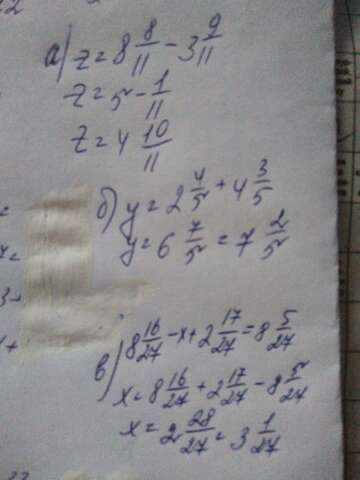 а) z = 8 8/11 - 3 9/11
z = 5 - 1/11
z = 4 10/11
б) y = 2 4/5 + 4 3/5
y = 6 7/5 = 7 2/5
в) 8 16/27 - x + 2 17/27 = 8 5/27
x = 8 16/27 + 2 17/27 - 8 5/27
x = 2 28/27 = 3 1/27